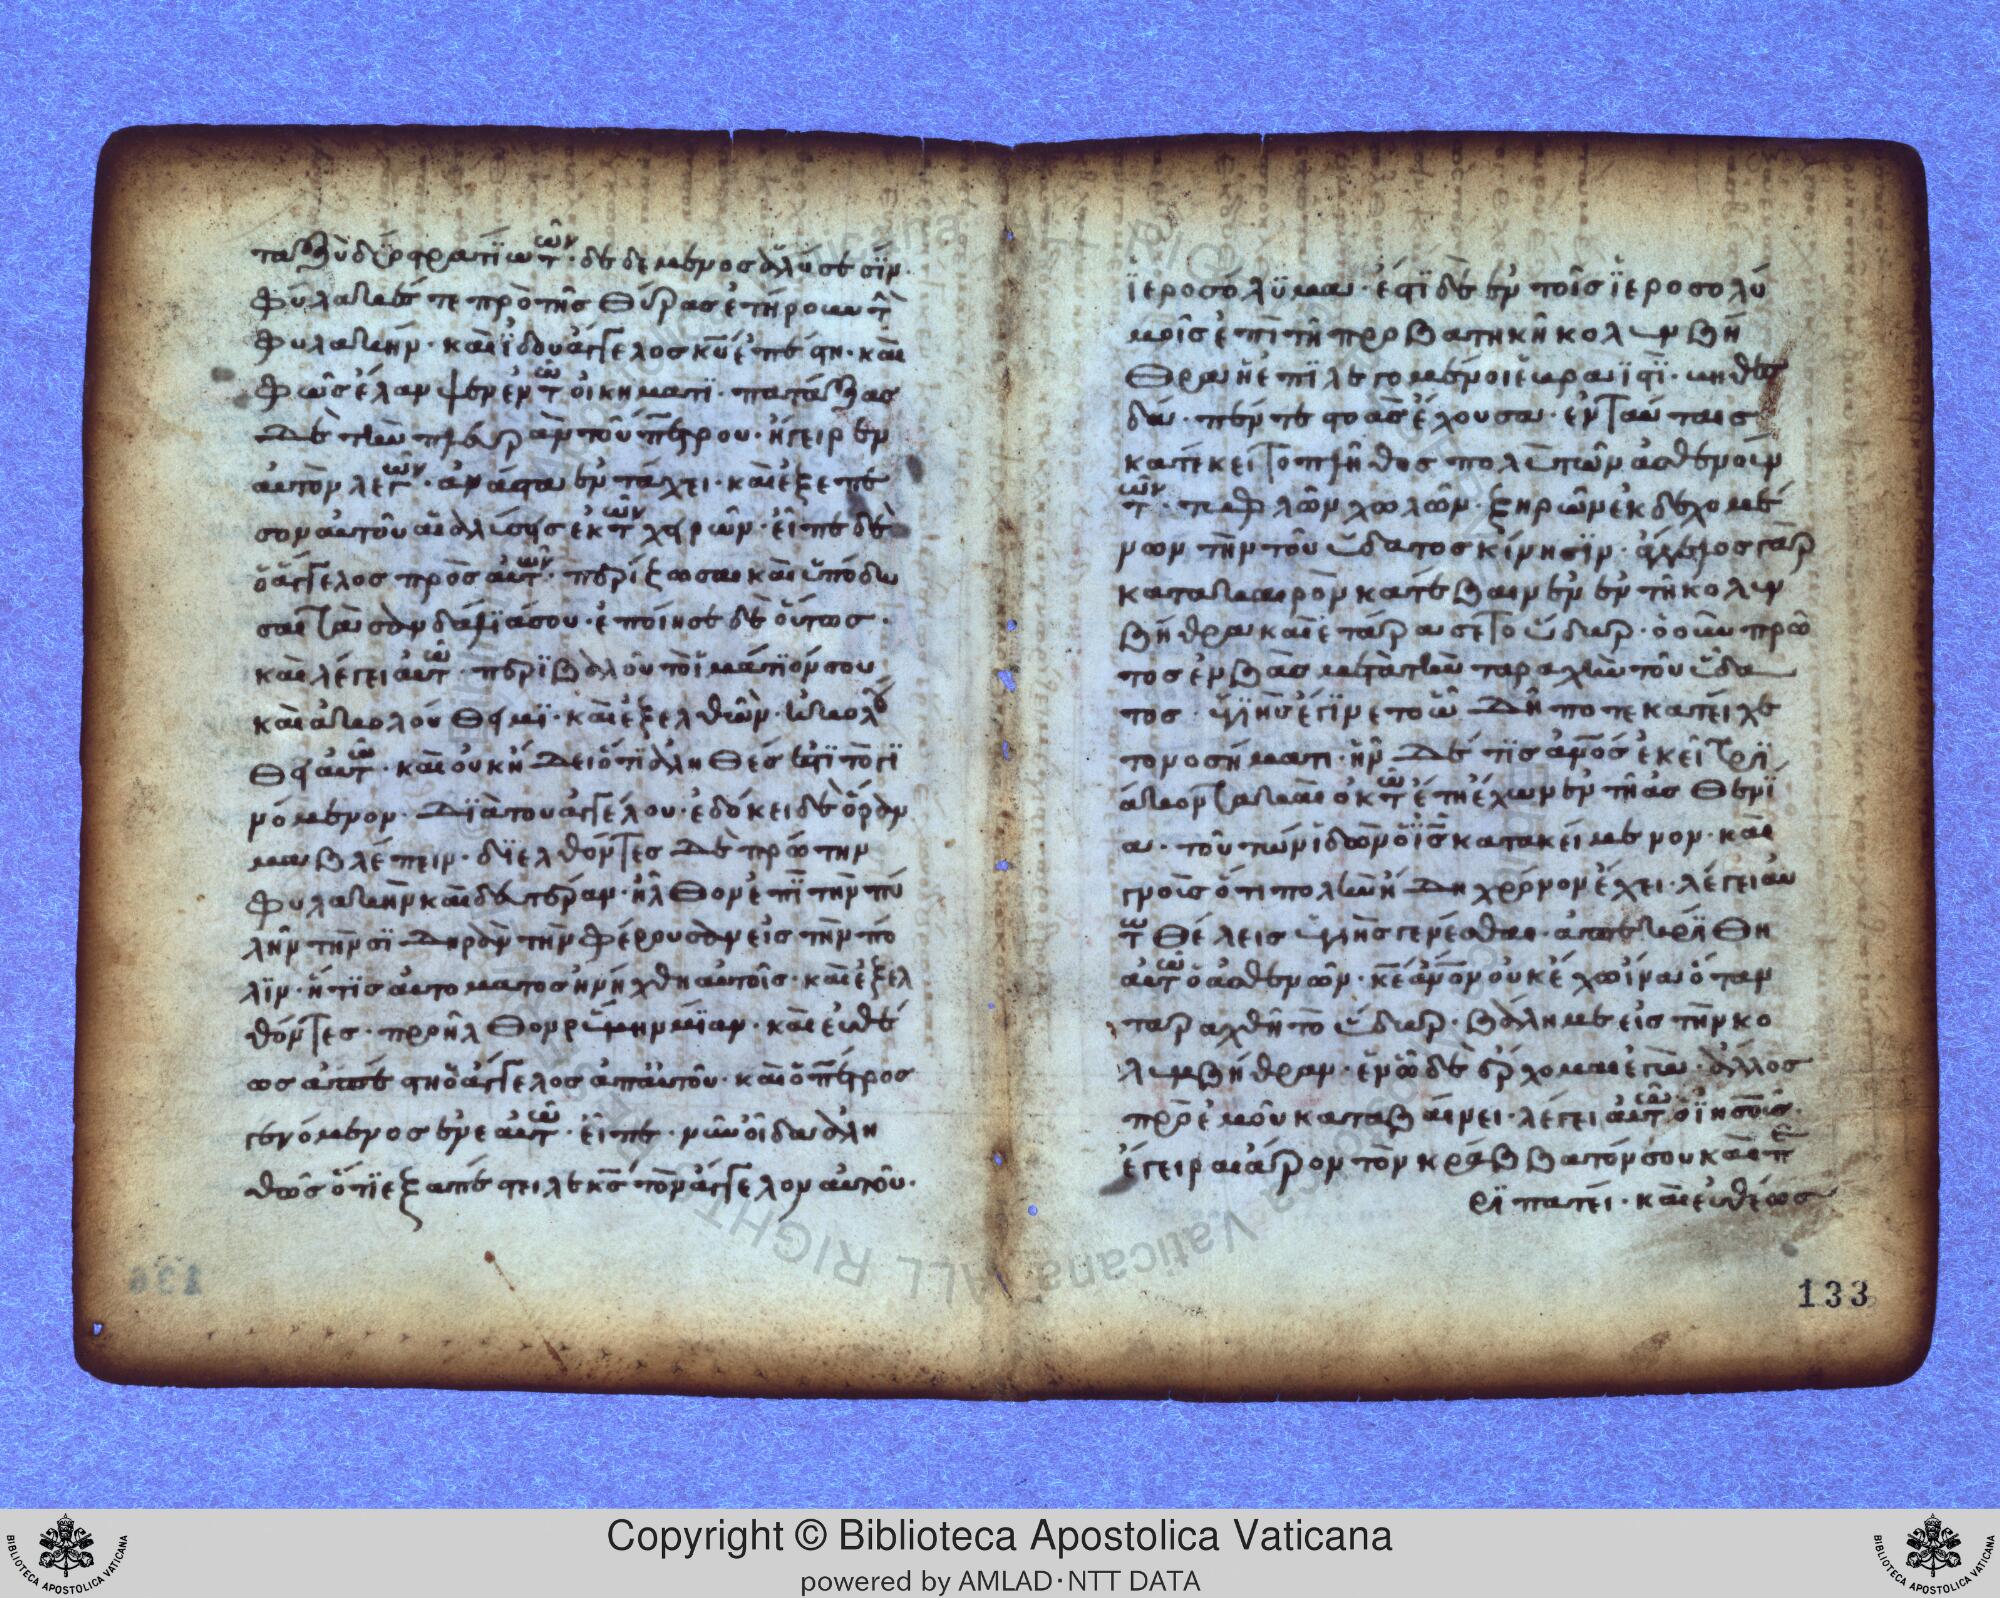 ταξὺ δύο στρατϊωτῶν· δεδεμένος ἁλύσεσϊν·
φύλακές τε πρὸ τῆς θύρας ἐτήρουν τ̀
φυλακήν· καὶ ϊδοὺ ἄγγελος κῡ ἐπέστη· καὶ
φῶς ἔλαμψεν ἐν τῶ οἰκήματϊ· πατάξας
δὲ τὴν πλευρὰν τοῦ πέτρου· ἤγειρεν
αὐτὸν λέγων· ἀνάστα ἐν τάχει· καὶ ἐξέπε
σον αὐτοῦ αἱ ἁλύσης ἐκ τῶν χειρῶν· εἶπε δὲ
ὁ ἄγγελος πρὸς αὐτῶν· περίζωσαι καὶ ὑπόδη
σαι τὰ σανδάλϊά σου· ἐποίησε δὲ οὕτως·
καὶ λέγει αὐτῶ· περϊβαλοῦ τὸ ἱμάτϊόν σου
καὶ ἀκολούθει μϊ· καὶ ἐξελθὼν· ἠκολού
θει αὐτῶ· καὶ οὐκ ἤδει ὅτϊ ἀληθές ἐστϊ τὸ γϊ
νόμενον· δϊὰ τοῦ ἀγγέλου· ἐδόκει δὲ ὅραμ
μα βλέπειν· δϊελθόντες δὲ πρώτην
φυλακὴν καὶ δευτέραν· ἦλθον ἐπὶ τὴν πύ
λην τὴν σϊδηρὰν τὴν φέρουσαν εἰς τὴν πό
λϊν· ἥτϊς αὐτόματος ἠνήχθη αὐτοῖς· καὶ ἐξελ
θόντες· προῆλθον ρύμην μίαν· καὶ εὐθέ
ως ἀπέστη ὁ ἄγγελος ἀπ' αὐτοῦ· καὶ ὁ πέτρος
γενόμενος ἐν ἑαυτῶ· εἶπε· νῦν οἶδα ἀλη
θῶς ὅτϊ ἐξαπέστειλε κς̄ τὸν ἄγγελον αὐτοῦ·
ϊεροσόλϋμα· ἔστϊ δὲ ἐν τοῖς ϊεροσολύ
μοις ἐπὶ τῆ προβατηκῆ κολυμβή
θρα ἡ ἐπϊλεγομένοι ἑωραϊστϊ· βηθεσ
δά· πέντε στοὰς ἔχουσα· ἐν ταύταις
κατέκειτο πλῆθος πολὺ τῶν ἀσθενούν
των· τυφλῶν χωλῶν· ξηρῶν ἐκδεχομέ
νων τὴν τοῦ ὕδατος κίνησϊν· ἄγγελος γὰρ
κατὰ καιρὸν κατέβαινεν ἐν τῆ κολυμ
βήθρα καὶ ἐτάρασε τὸ ὕδωρ· ὁ οὖν πρῶ
τος ἐμβὰς μετὰ τὴν ταραχὴν τοῦ ὕδα
τος· ὑγιὴς ἐγίνετο ὧ δήποτε κατείχε
το νοσήματι· ἦν δέ τϊς ἀν̅ος ἐκεῖ τρϊ
άκοντα καὶ ὀκτῶ ἔτη ἔχων ἐν τῆ ἀσθενί
α· τοῦτων ἰδὼν ὁ ϊς̄ κατακείμενον· καὶ
γνοὺς ὅτι πολὺν ἤδη χρόνον ἔχει· λέγει αὐ
τῶ θέλεις ὑγιὴς γενέσθαι· ἀπεκρϊθη
αὐτῶ ὁ ἀσθενῶν· κ̄ε ἀν̅ον οὐκ ἔχω ἵνα ὅταν
ταραχθῆ τὸ ὕδωρ· βάλη με εἰς τὴν κο
λυμβήθραν· ἐν ὧ δὲ ἔρχομαι ἐγὼ· ἄλλος
πρὸ ἐμοῦ καταβαίνει· λέγει αὐτῶ ὁ ϊησοῦς·
ἔγειραι ἆρον τὸν κράββατόν σου καὶ πε
ρϊπάτει· καὶ εὐθέως
133
Copyright © Biblioteca Apostolica Vaticana
powered by AMLAD·NTT DATA